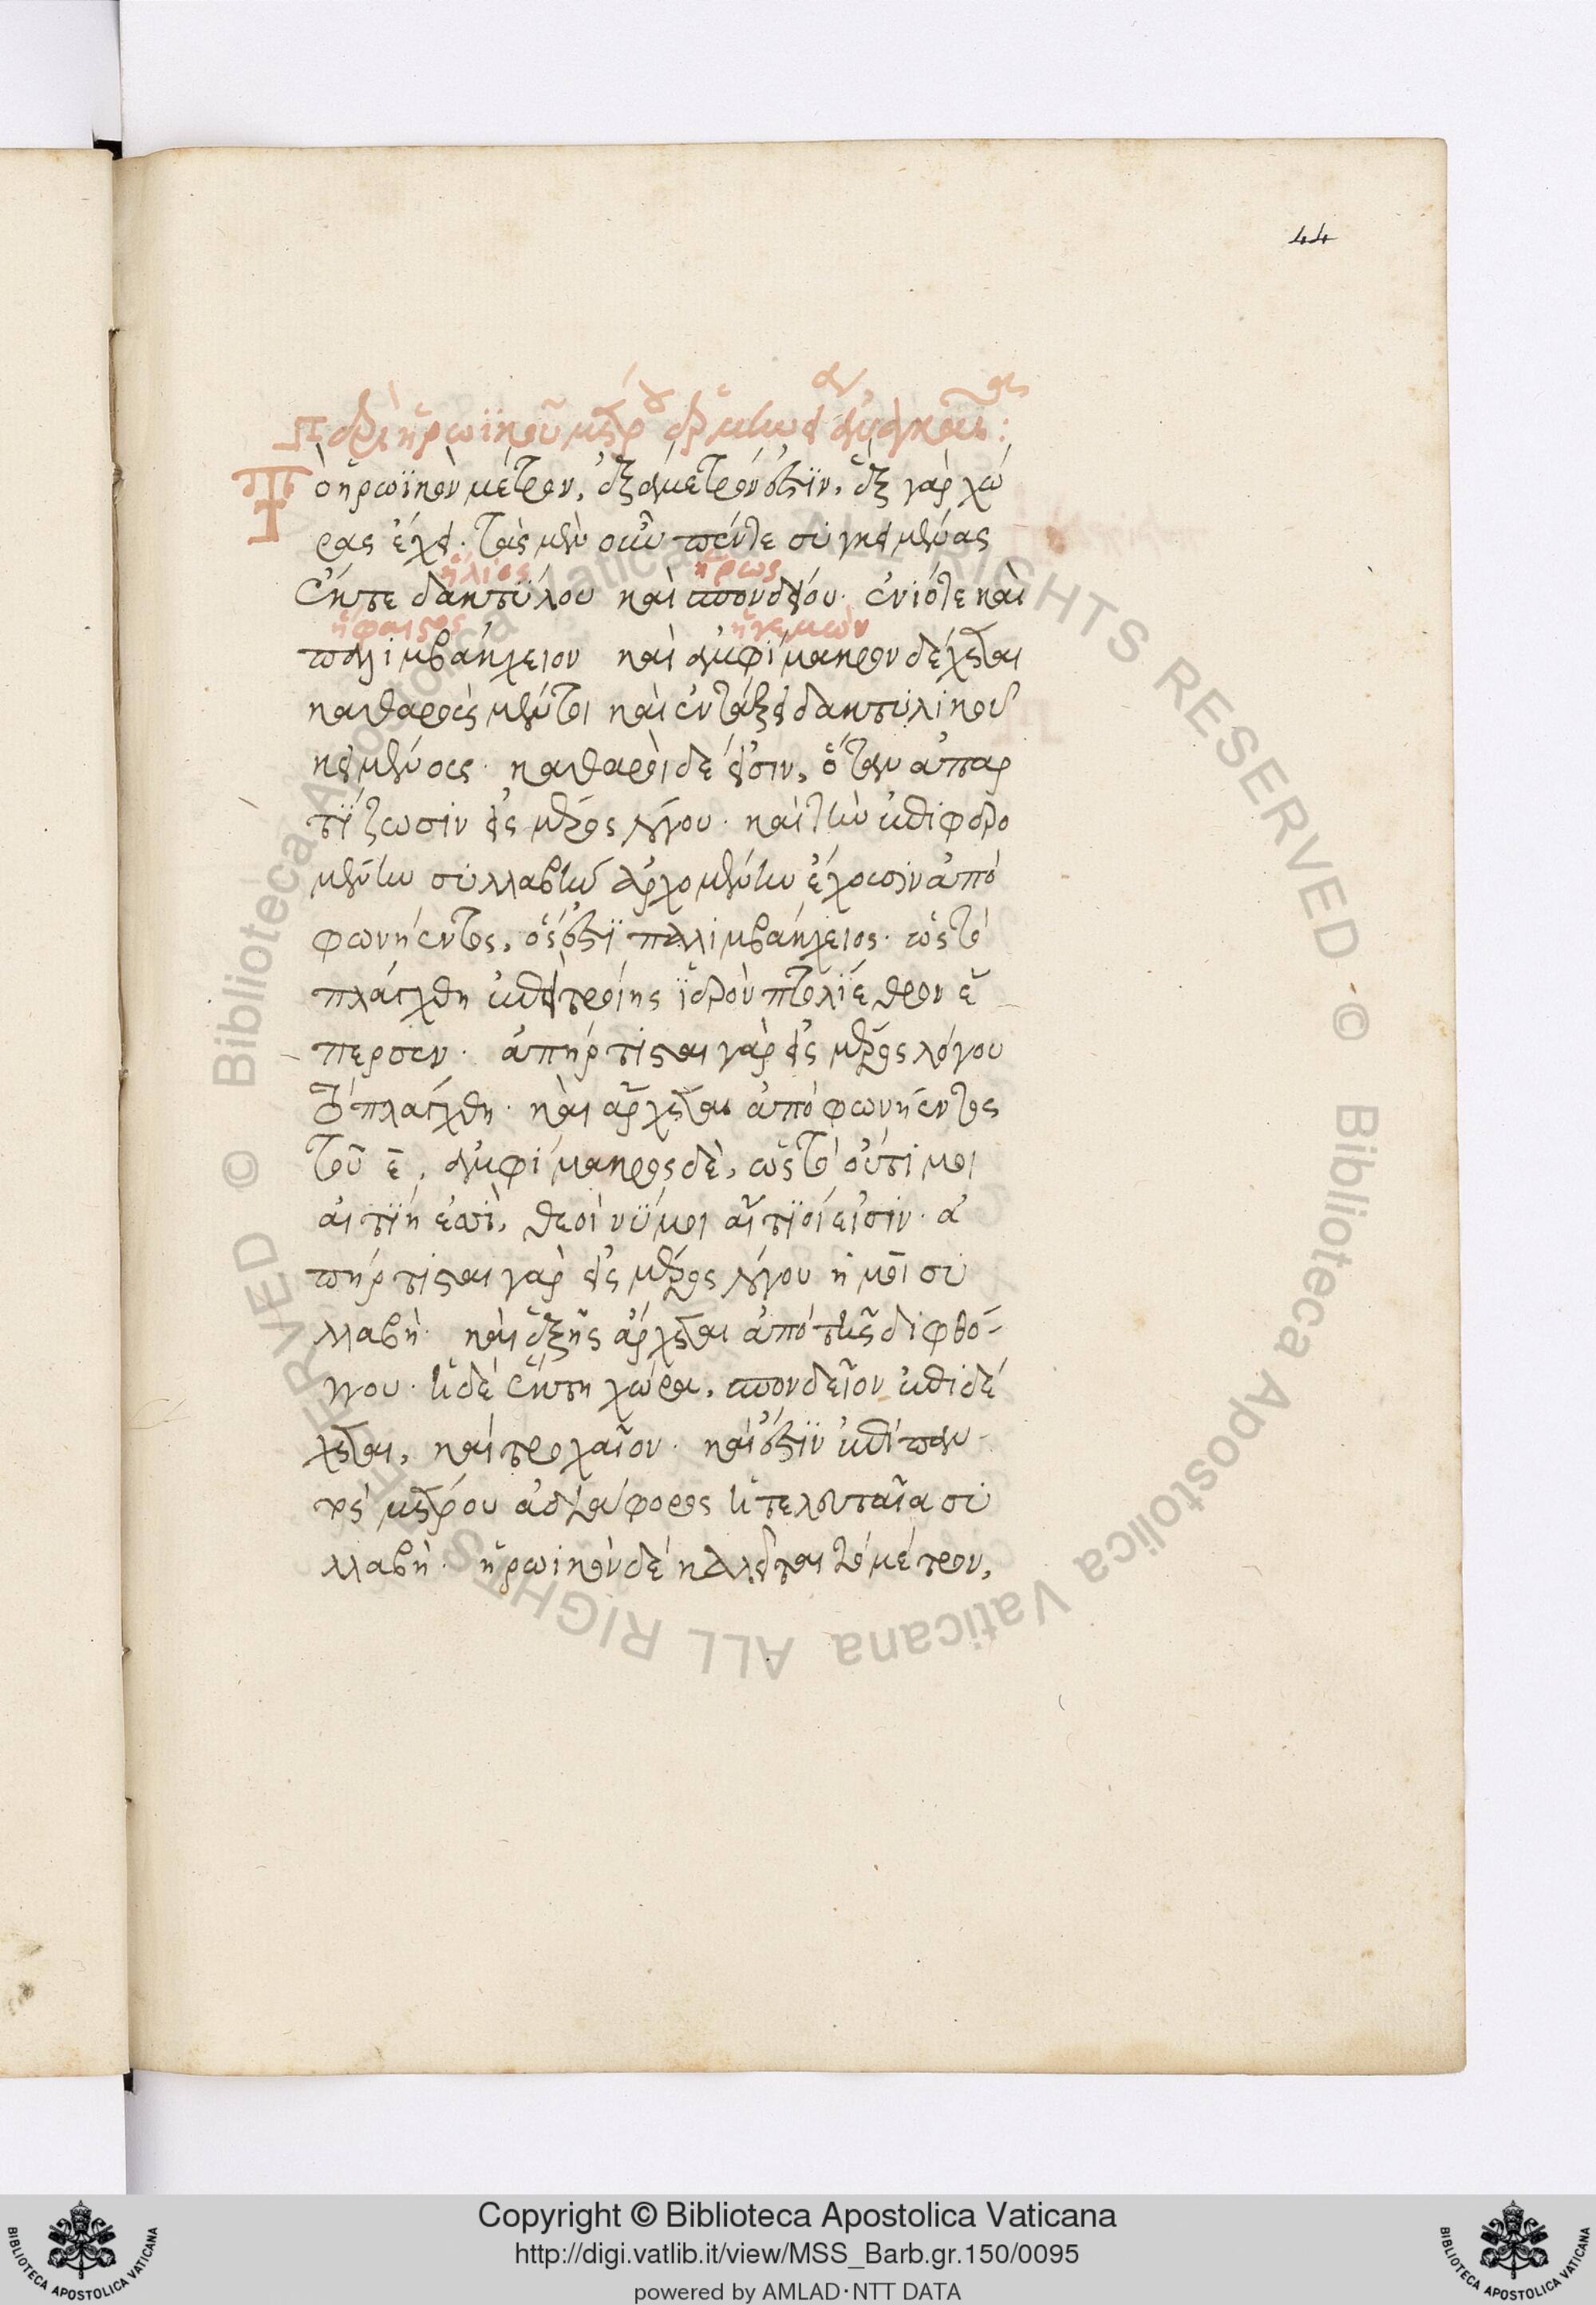 44
Περὶ ἡρωϊκοῦ μέτρου
Τὸ ἡρωϊκὸν μέτρον, ἑξάμετρόν ἐστϊν, ἓξ γὰρ χώ
ρας ἔχει· τὰς μὲν οὖν πέντε συγκειμένας
ἥλιος ἥρως
ἔκ τε δακτύλου καὶ σπονδείου· ἐνίοτε καὶ
ἥφαιστος ἡγεμὼν
παλιμβάκχειον καὶ ἀμφίμακρον δέχεται
καθαροὺς μέντοι καὶ ἐν τάξει δακτυλικοῦ
κειμένους· καθαροὶ δέ εἰσιν, ὅταν ἀπαρ
τϊζωσιν εἰς μέρος λόγου· καὶ τὴν ἐπιφερο
μένην συλλαβὴν ἀρχομένην ἔχουσιν ἀπὸ
φωνήεντος, ὅς ἐστϊ παλιμβάκχειος· ὡς τὸ
πλάγχθη ἐπεὶ τροίης ϊερὸν πτολίεθρον ἔ
περσεν· ἀπήρτισται γὰρ εἰς μέρος λόγου
τὸ πλάγχθη· καὶ ἄρχεται ἀπὸ φωνήεντος
τοῦ ε̄, ἀμφίμακρος δὲ, ὡς τὸ οὔτι μοι
αἰτϊη ἐσσὶ, θεοὶ νϋ μοι αἴτϊοί εἰσιν· ἀ
πήρτισται γὰρ εἰς μέρος λόγου ἡ μοι συ
λλαβὴ· καὶ ἑξῆς ἄρχεται ἀπὸ τῆς διφθό-
γγου· ἡ δὲ ἕκτη χώρα, σπονδεῖον ἐπιδέ
χεται, καὶ τροχαῖον· καὶ ἔστϊν ἐπὶ παν-
τὸς μέτρου ἀδιάφορος ἡ τελευταῖα συ
λλαβὴ· ἡρωικὸν δὲ καλεῖται τὸ μέτρον,
Copyright © Biblioteca Apostolica Vaticana
http://digi.vatlib.it/view/MSS_Barb.gr.150/0095
powered by AMLAD·NTT DATA
BIBLIOTECA APOSTOLICA VATICANA
BIBLIOTECA APOSTOLICA VATICANA
© Biblioteca Apostolica Vaticana ALL RIGHTS RESERVED
© Biblioteca Apostolica Vaticana ALL RIGHTS RESERVED